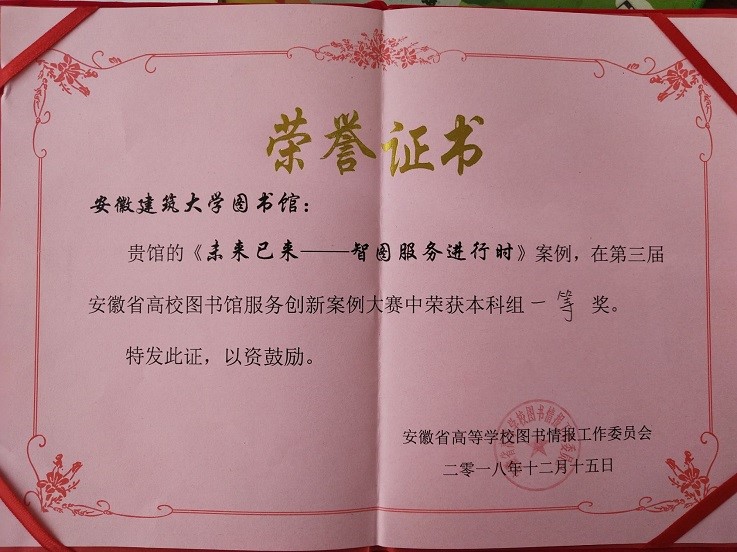 荣誉证书
安徽建筑大学图书馆：
贵馆的《未来已来——智图服务进行时》案例，在第三届
安徽省高校图书馆服务创新案例大赛中荣获本科组一等奖。
特发此证，以资鼓励。
安徽省高等学校图书情报工作委员会
二零一八年十二月十五日